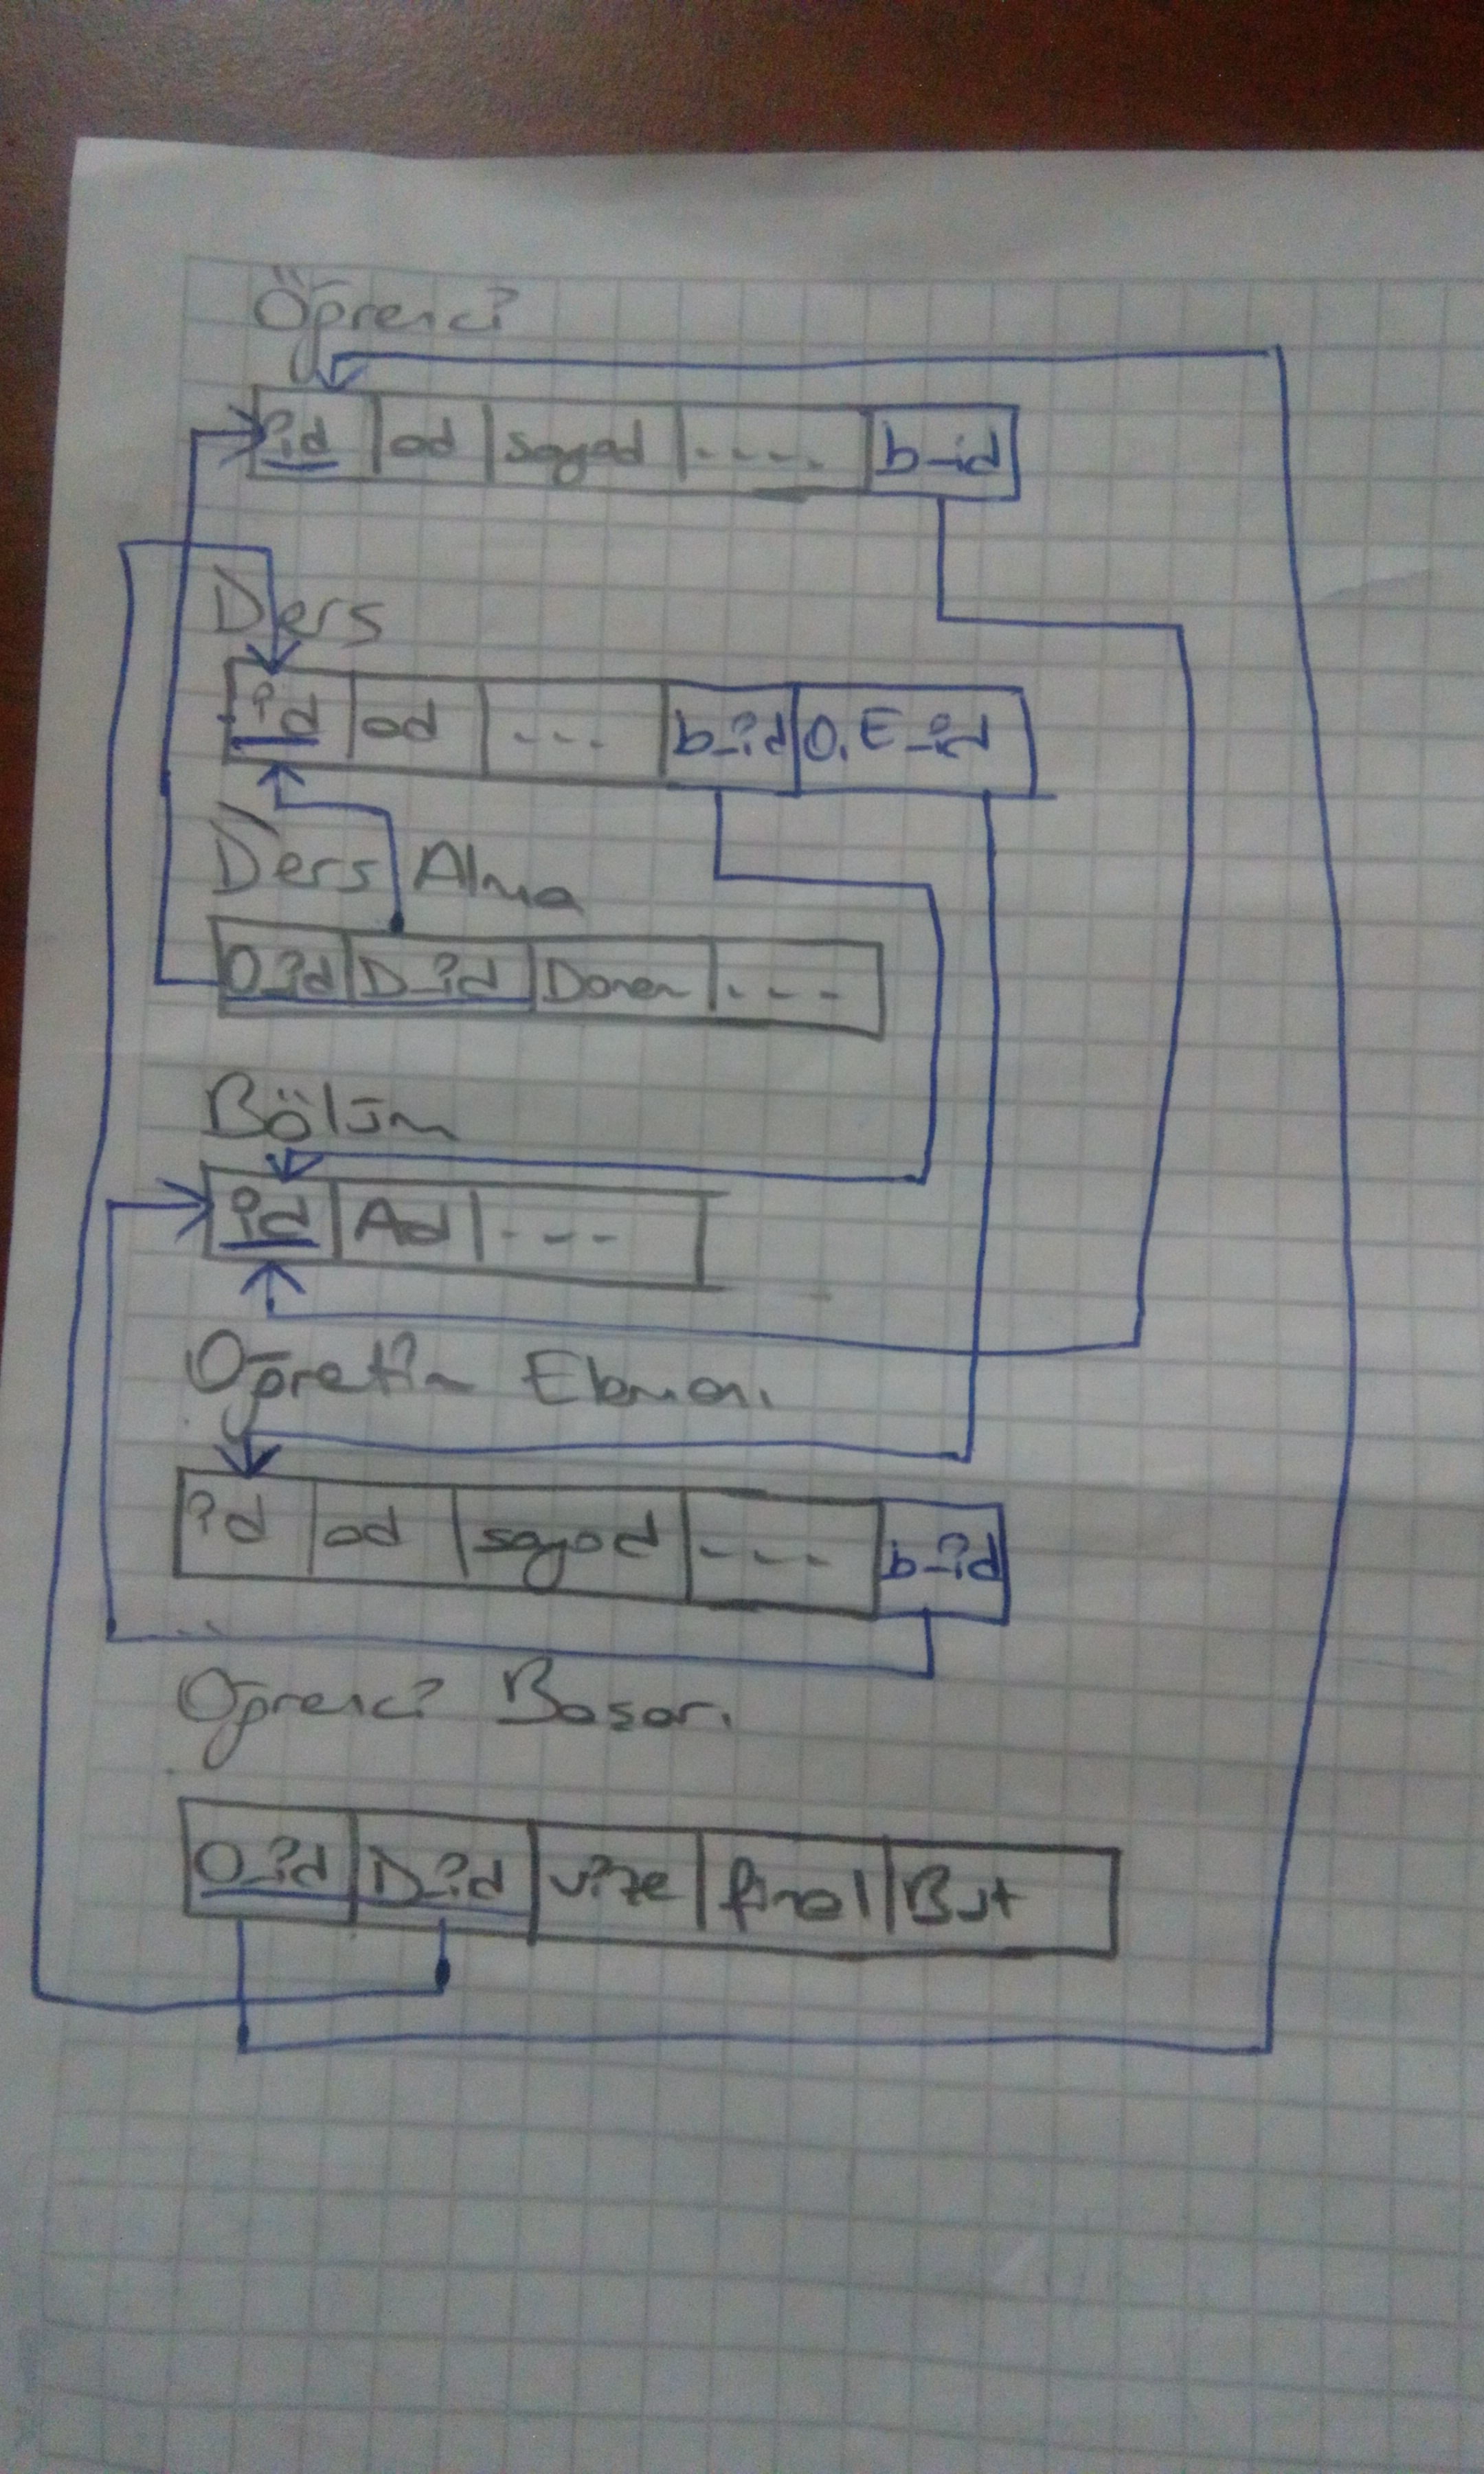 Öğrenci
id ad soyad ---- b_id
Ders
id ad --- b_id Ö.E_id
Ders Alma
Ö_id D_id Dönem ---
Bölüm
id Ad ---
Öğretim Elemanı
id ad soyad ---- b_id
Öğrenci Başarı
Ö_id D_id vize final Büt